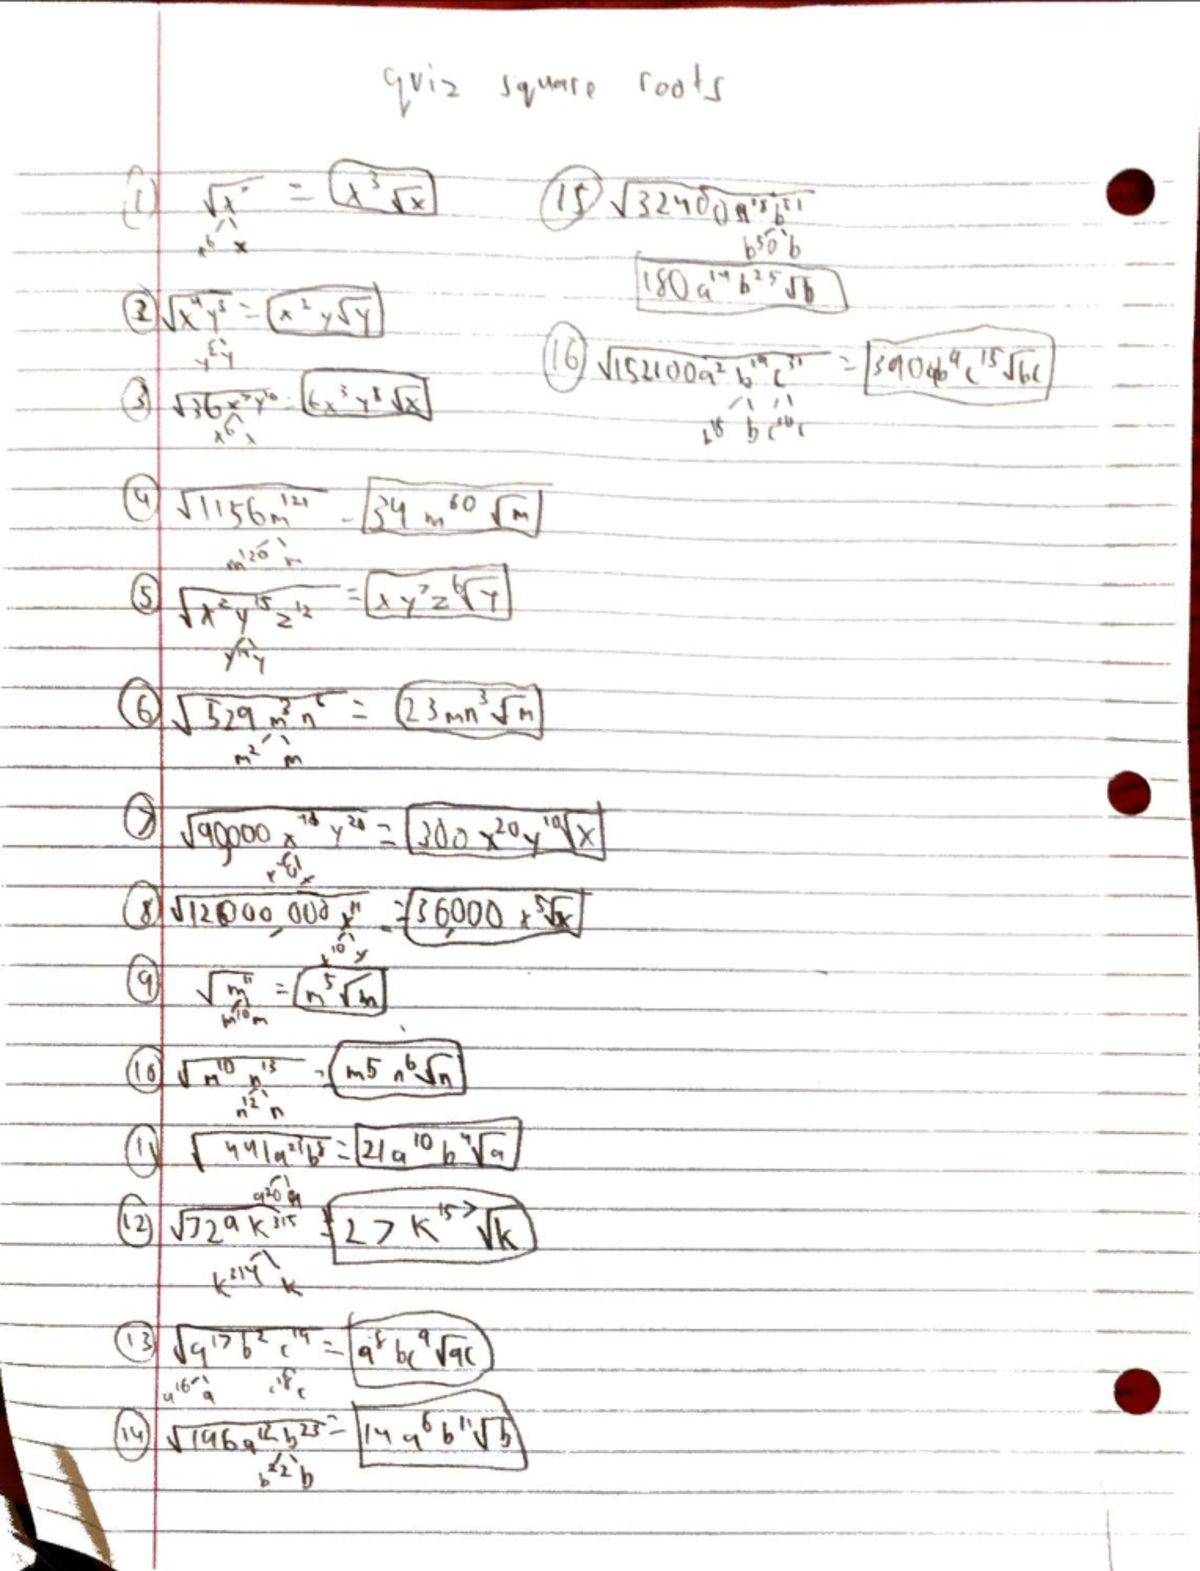 quiz square roots
① √x⁷ = x³√x
x⁶ x
② √x⁴y³ = x²y√y
y² y
③ √36x⁷y¹⁶ = 6x³y⁸√x
x⁶ x
④ √1156m¹²¹ = 34m⁶⁰√m
m¹²⁰ m
⑤ √x²y¹⁵z¹² = xy⁷z⁶√y
y¹⁴ y
⑥ √529m³n⁶ = 23mn³√m
m² m
⑦ = 300x²⁰y¹⁰√x
⑧ = 36,000x⁵√x
x¹⁰ x
⑨ √m¹¹ = m⁵√m
m¹⁰ m
⑩ √m¹⁰n¹³ = m5n⁶√n
n¹² n
⑪ √441a²¹b⁸ = 21a¹⁰b⁴√a
a²⁰ a
⑫ √729k³¹⁵ = 27k¹⁵⁷√k
k³¹⁴ k
⑬ √a¹⁷b²c¹⁹ = a⁸bc⁹√ac
a¹⁶ a c¹⁸ c
⑭ √196a¹²b²³ = 14a⁶b¹¹√b
b²² b
⑮
b⁵⁰ b
180a¹⁴b²⁵√b
⑯ √152100a²b¹⁹c³¹ = 390ab⁹c¹⁵√bc